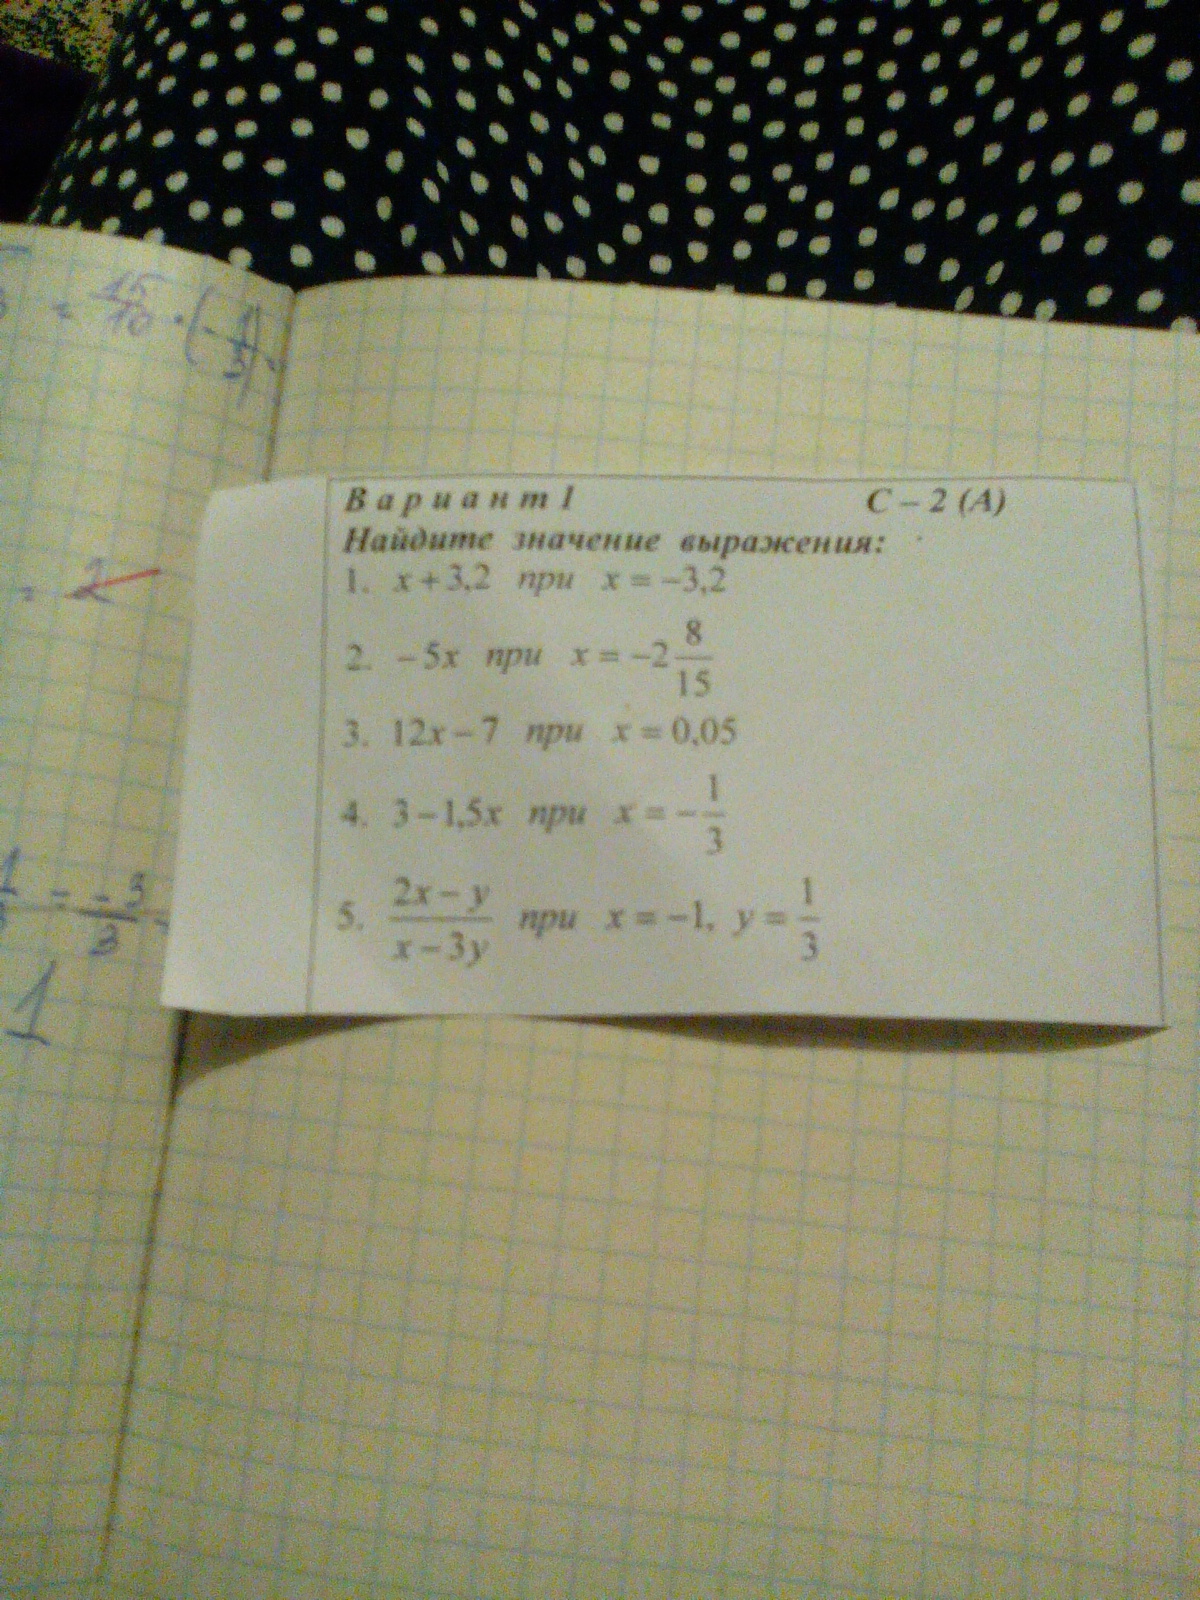 = 15/10 · (-1/3) =
= 2
= -3/3 =
1
Вариант 1 С – 2 (А)
Найдите значение выражения:
1. x + 3,2 при x = –3,2
2. – 5x при x = –2 8/15
3. 12x – 7 при x = 0,05
4. 3 – 1,5x при x = – 1/3
5. (2x – y)/(x – 3y) при x = –1, y = 1/3